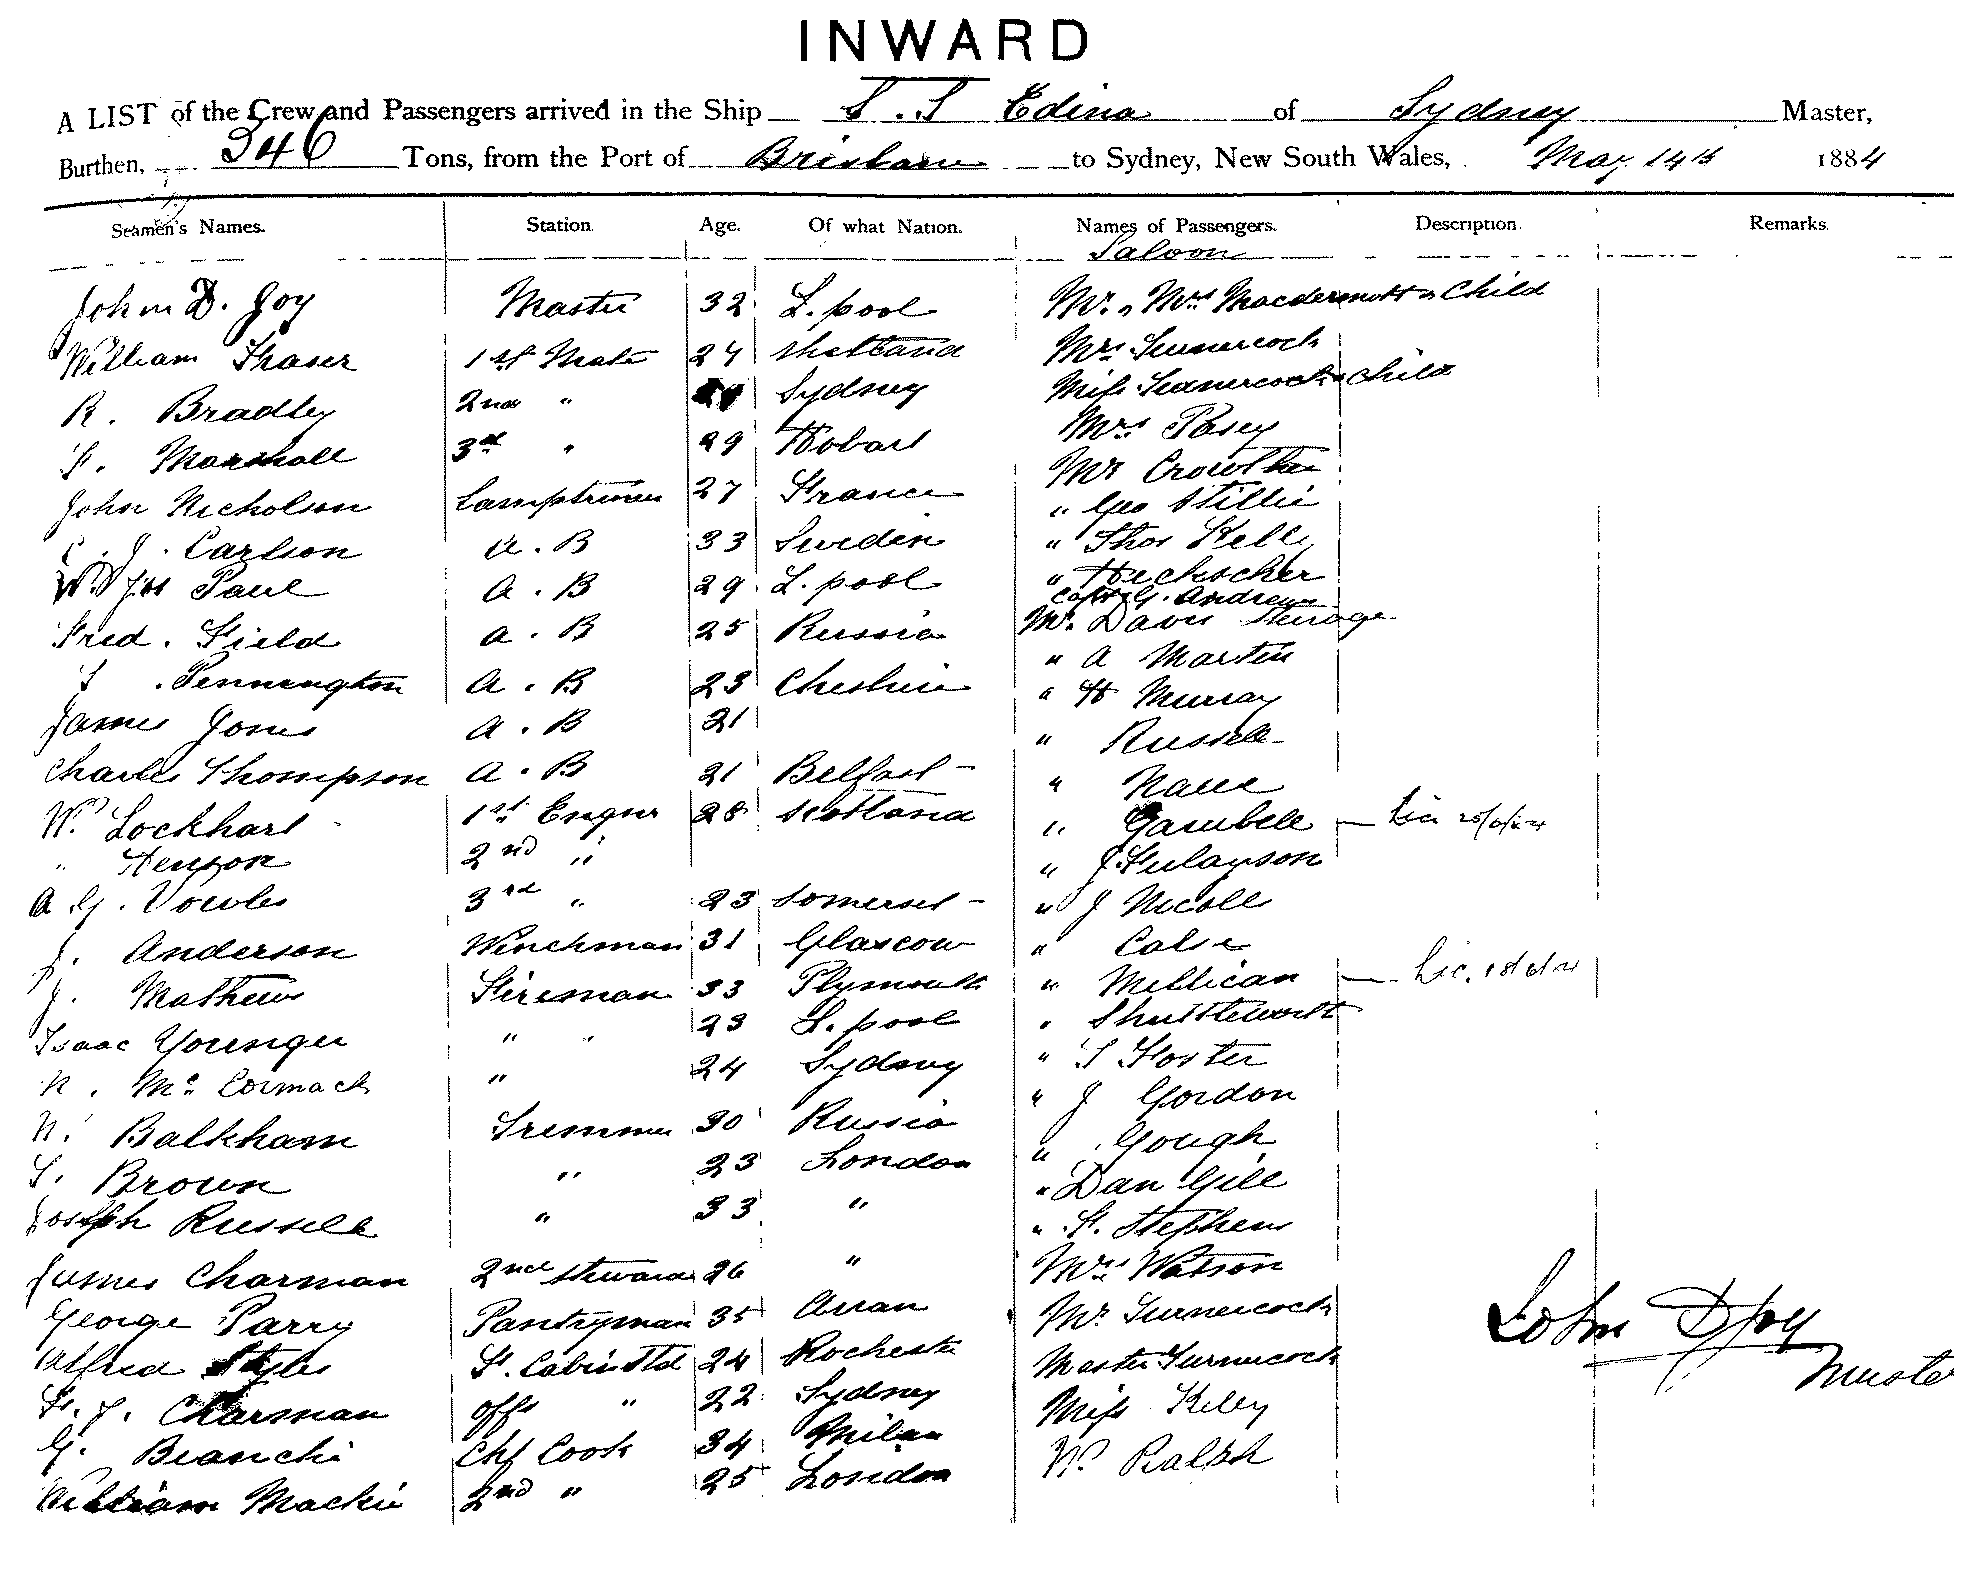 INWARD
A LIST of the Crew and Passengers arrived in the Ship S.S Edina of Sydney Master,
Burthen, 346 Tons, from the Port of Brisbane to Sydney, New South Wales, May 14th 1884
Seamen's Names. Station Age. Of what Nation. Names of Passengers. Description. Remarks.
Saloon
John D. Joy Master 32 L.pool Mr. & Mrs Macdermott & Child
William Fraser 1st Mate 24 Shetland Mrs Turnercock
R. Bradley 2nd " Sydney Miss Turnercock & Child
F. Marshall 3rd " 29 Hobart Mrs Posey
John Nicholson Lamptrimer 27 France Mr Crowther
C. J. Carlson A.B 33 Sweden " Geo Stillie
Paul A.B 29 L.pool " Thos Kell
" Heckscher
Capt G. Andrews
Fred. Field A.B 25 Russia Mr. Davis Steerage
T. Pennington A.B 23 Cheshire " A Martin
James Jones A.B 21 " H Murray
Charles Thompson A.B 21 Belfast " Russell
Wm Lockhart 1st Engnr 28 Scotland "
" Henson 2nd " " Gambele
A G. Vowles 3rd " 23 Somerset " J Finlayson
J. Anderson Winchman 31 Glascow " J Nicoll
J. Mathews Fireman 33 Plymouth "
Isaac Younger " 23 L.pool " Millican
N. McCormack " 24 Sydney " Shuttleworth
N. Balkham Trimmer 30 Russia " T Foster
T. Brown " 23 London " J Gordon
Joseph Russell " 33 " " Gough
James Charman 2nd Steward 26 " " Dan Gill
George Parry Pantryman 35 Arran " F. Stephens
Alfred Styles F. Cabin Std 24 Rochester Mrs Watson
F. J. Charman Offs " 22 Sydney Mr. Turnercock
G. Bianchi Chf Cook 34 Milan Master Turnercock
William Mackie 2nd " 25 London Miss Kiley
Wm Ralph
John D Joy
Master